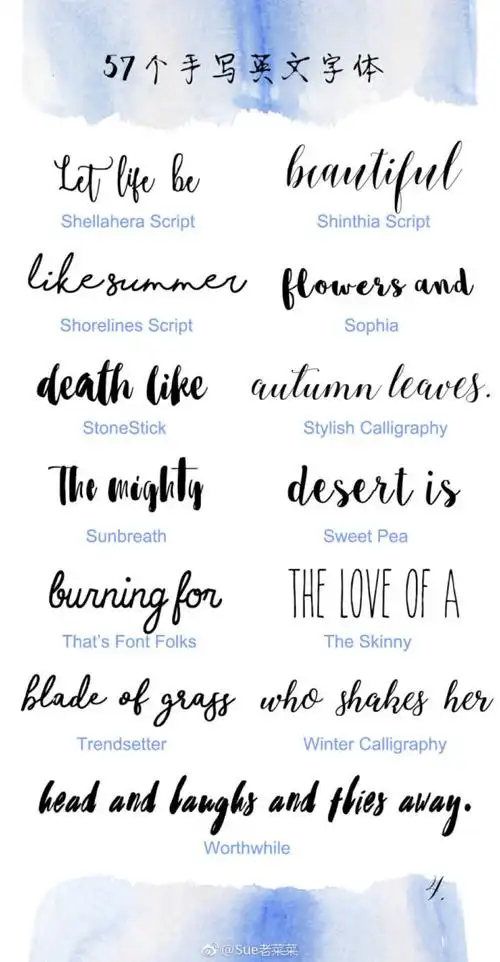 57个手写英文字体
Let life be
beautiful
Shellahera Script
Shinthia Script
like summer
flowers and
Shorelines Script
Sophia
death like
autumn leaves.
StoneStick
Stylish Calligraphy
The mighty
desert is
Sunbreath
Sweet Pea
burning for
THE LOVE OF A
That's Font Folks
The Skinny
blade of grass
who shakes her
Trendsetter
Winter Calligraphy
head and laughs and flies away.
Worthwhile
4.
@Sue老菜菜